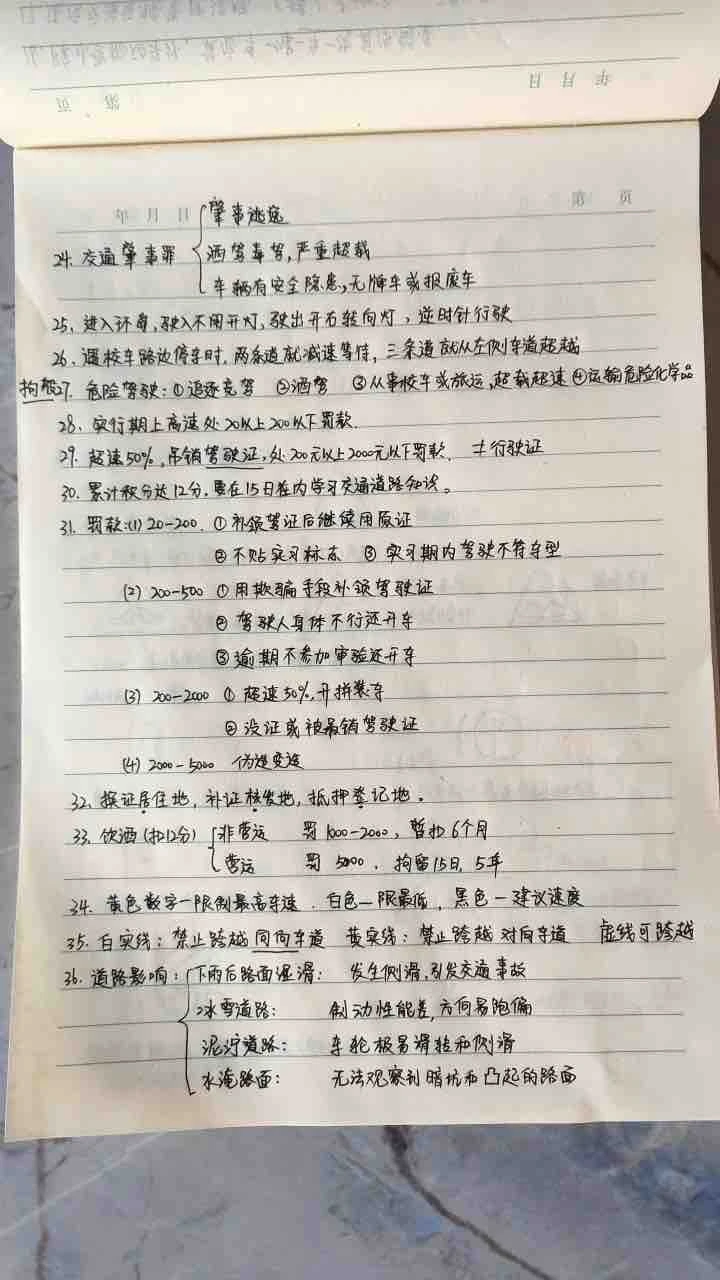 第 页
年 月 日
年 月 日
第 页
肇事逃逸
24. 交通肇事罪 酒驾毒驾,严重超载
车辆有安全隐患,无牌车或报废车
25. 进入环岛,驶入不用开灯,驶出开右转向灯,逆时针行驶
26. 遇校车路边停车时,两条道就减速等待,三条道就从左侧车道超越
拘役27. 危险驾驶:①追逐竞驾 ②酒驾 ③从事校车或旅运,超载超速 ④运输危险化学品
28. 实行期上高速处20以上200以下罚款.
29. 超速50%,吊销驾驶证,处200元以上2000元以下罚款. ≠行驶证
30. 累计积分达12分,要在15日在内学习交通道路知识。
31. 罚款:(1) 20-200. ①补领驾证后继续用原证
②不贴实习标志 ③实习期内驾驶不符车型
(2) 200-500 ①用欺骗手段补领驾驶证
②驾驶人身体不行还开车
③逾期不参加审验还开车
(3) 200-2000 ①超速50%,开拼装车
②没证或被吊销驾驶证
(4) 2000-5000 伪造变造
32. 换证居住地,补证核发地,抵押登记地.
33. 饮酒(扣12分) 非营运 罚1000-2000,暂扣6个月
营运 罚5000,拘留15日,5年
34. 黄色数字—限制最高车速.白色—限最低,黑色—建议速度
35. 白实线:禁止跨越同向车道 黄实线:禁止跨越对向车道 虚线可跨越
36. 道路影响:下雨后路面湿滑: 发生侧滑,引发交通事故
冰雪道路: 制动性能差,方向易跑偏
泥泞道路: 车轮极易滑转和侧滑
水淹路面: 无法观察到暗坑和凸起的路面